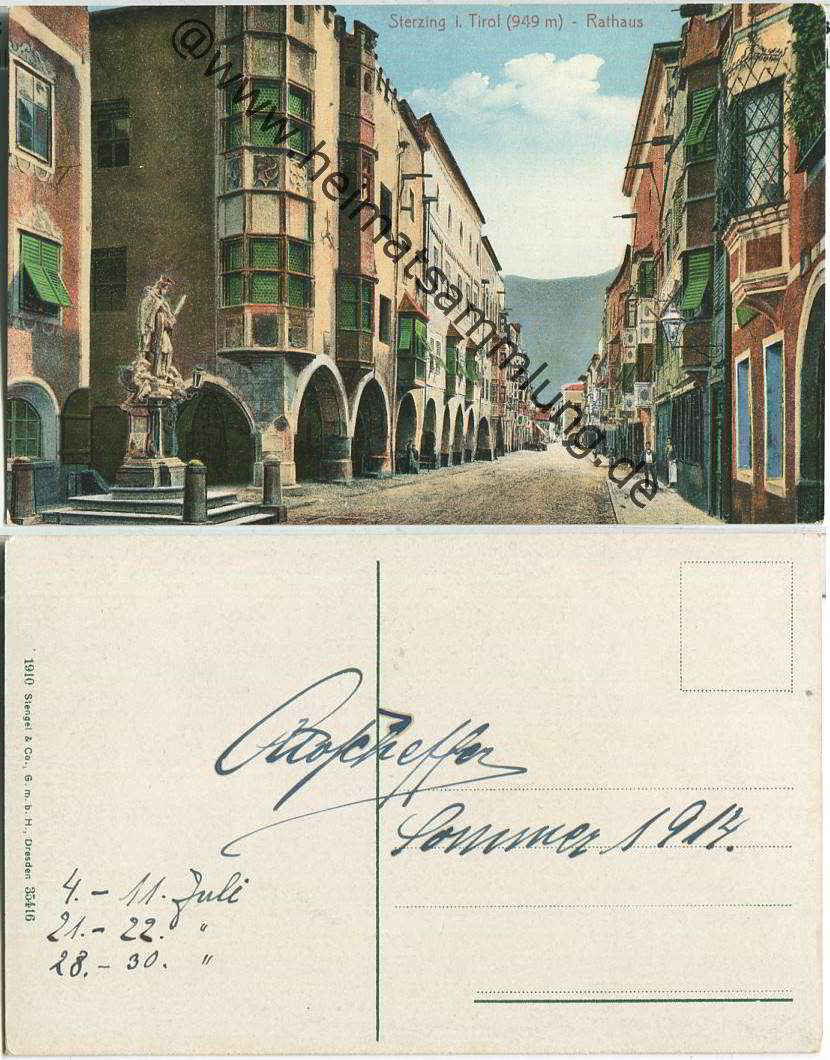 Sterzing i. Tirol (949 m) - Rathaus
@www.heimatsammlung.de
1910 Stengel & Co., G. m. b. H., Dresden 35416
Otto Scheffer
Sommer 191
4. - 11. Juli
21. - 22. "
28. - 30. "